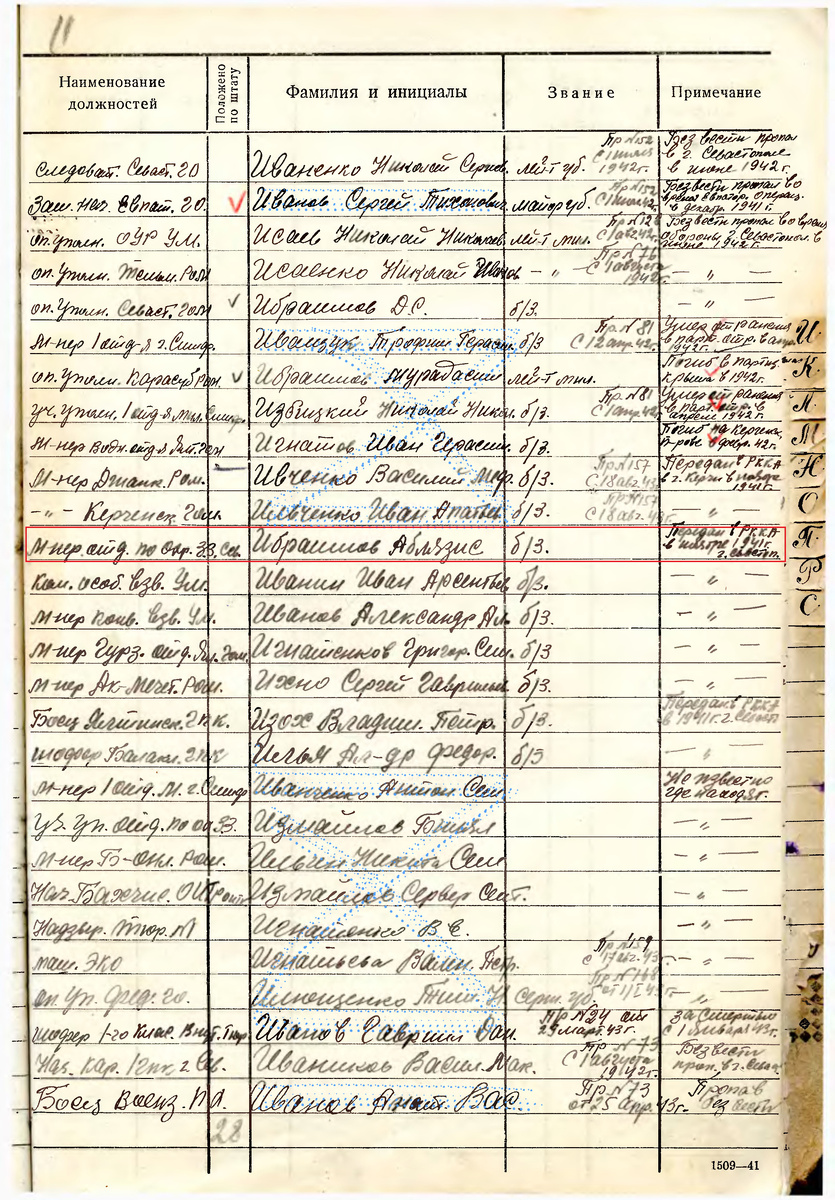 11
Наименование должностей Положено по штату Фамилия и инициалы Звание Примечание
Следоват. Севаст. ГО Иваненко Николай Серг. лей-т гб. Пр №152 с 1 июля 1942 г. Без вести пропал в г. Севастополе в июне 1942 г.
Зам. нач. Евпат. ГО Иванов Сергей Тихонович майор гб. Пр №152 Без вести пропал во время Евпатор. операц. в декабр. 1941 г.
оп. уполн. ОУР У.М. Исаев Николай Николаев. лей-т мил. с 1 авг 42 г. Без вести пропал во время обороны г. Севастопол. в июне 1942 г.
оп. уполн. Тельм. Р.о.м Исаенко Николай Иванов — „ — Пр №76 с 1 августа 1942 г. — „ —
оп. уполн. Севаст. Гом Ибраимов Д.С. б/з. — „ —
м-нер 1 отд-я г. Симф. Иващук Трофим Герасим. б/з Пр. №81 с 12 апр. 42 г. Умер от ранения в парт. отр. в апр. 1942 г.
оп. уполн. Карасуб. Ром. Ибраимов Мурадасил лей-т мил. Погиб в партиз. Крыма в 1942 г.
уч. уполн. 1 отд-я мил. Симф. Избицкий Николай Никол. б/з. Пр. №81 с 1 апр. 42 г. Умер от ранения в парт. отр. в апреле 1942 г.
м-нер водн. отд-я Ял. Гом Игнатов Иван Герасим. б/з. Погиб на Керченс. п-рове февр. 42 г.
м-нер Джанк. Ром. Ивченко Василий Меф. б/з. Пр №157 с 18 авг. 43 г. Передан в РККА в г. Керчи в ноябре 1941 г.
— „ — Керченск. Гом. Ильченко Иван б/з. Пр №157 с 18 авг. 43 г. — „ —
м-нер. отд. по охр. ЗЗ. Сев. Ибраимов Аблязис б/з. Передан в РККА в ноябре 1941 г. г. Севастоп.
Ком. особ. взв. У.м. Иванин Иван Арсентьев б/з. — „ —
м-нер конв. взв. У.м. Иванов Александр Ал. б/з. — „ —
м-нер Гурз. отд. Ял. Гом. Игнатенков Григор. Сем. б/з. — „ —
м-нер Ак-Мечет. Ром. Ихно Сергей Гаврилов б/з. — „ —
Боец Ялтинск. ГПК. Изох Владим. Петр. б/з. Передан в РККА в 1941 г. г. Севаст
шофер Балакл. ГПК Ильм Ал-др Федор. б/з — „ —
м-нер 1 отд. М. г. Симф Иванченко Антон Сем. Не известно где находят.
Уч. уп. отд. по ох ЗЗ. Измайлов — „ —
м-нер Б-Онл. Ром. Ильин Никита Сем — „ —
Нач. Бахчис. Измайлов Сервер Сеит. — „ —
Надзир. Тюр. №1 Игнатенко В.Е. — „ —
маш. ЭКО Игнатьева Вален. Петр. Пр №159 с 17 авг. 43 г. — „ —
оп. уп. Феод. ГО. Илющенко Тим. Н Серж. гб Пр №168 — „ —
шофер 1-го клас. Внут. Тюр. Иванов Гаврил Дан. Пр №24 от 29 март. 43 г. за смертью с 1 января 43 г.
Нач. Кар. Сев. Иваников Васил. Мак. Пр. №73 с 1 августа 1942 г. Без вести проп. в г. Севаст
Боец Иванов Анат. Вас. Пр. №73 от 25 апр. 43 г. Пропав без вести
28
И К Л М Н О П Р С
1509—41